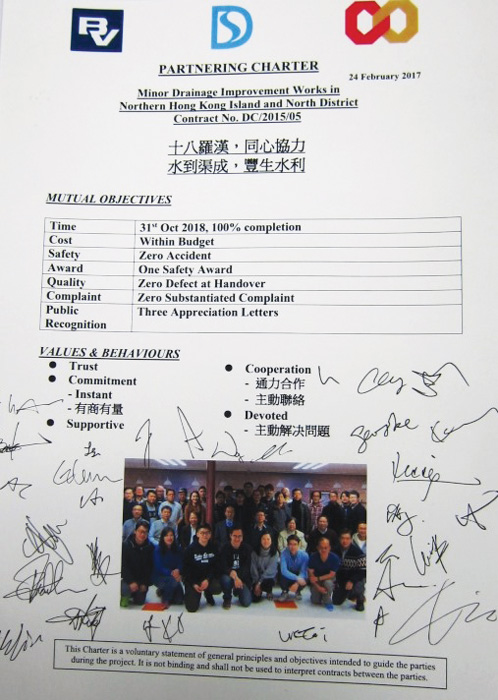 BV
DS
PARTNERING CHARTER
24 February 2017
Minor Drainage Improvement Works in
Northern Hong Kong Island and North District
Contract No. DC/2015/05
十八羅漢，同心協力
水到渠成，豐生水利
MUTUAL OBJECTIVES
Time 31st Oct 2018, 100% completion
Cost Within Budget
Safety Zero Accident
Award One Safety Award
Quality Zero Defect at Handover
Complaint Zero Substantiated Complaint
Public Recognition Three Appreciation Letters
VALUES & BEHAVIOURS
● Trust
● Commitment
- Instant
- 有商有量
● Supportive
● Cooperation
- 通力合作
- 主動聯絡
● Devoted
- 主動解決問題
This Charter is a voluntary statement of general principles and objectives intended to guide the parties
during the project. It is not binding and shall not be used to interpret contracts between the parties.